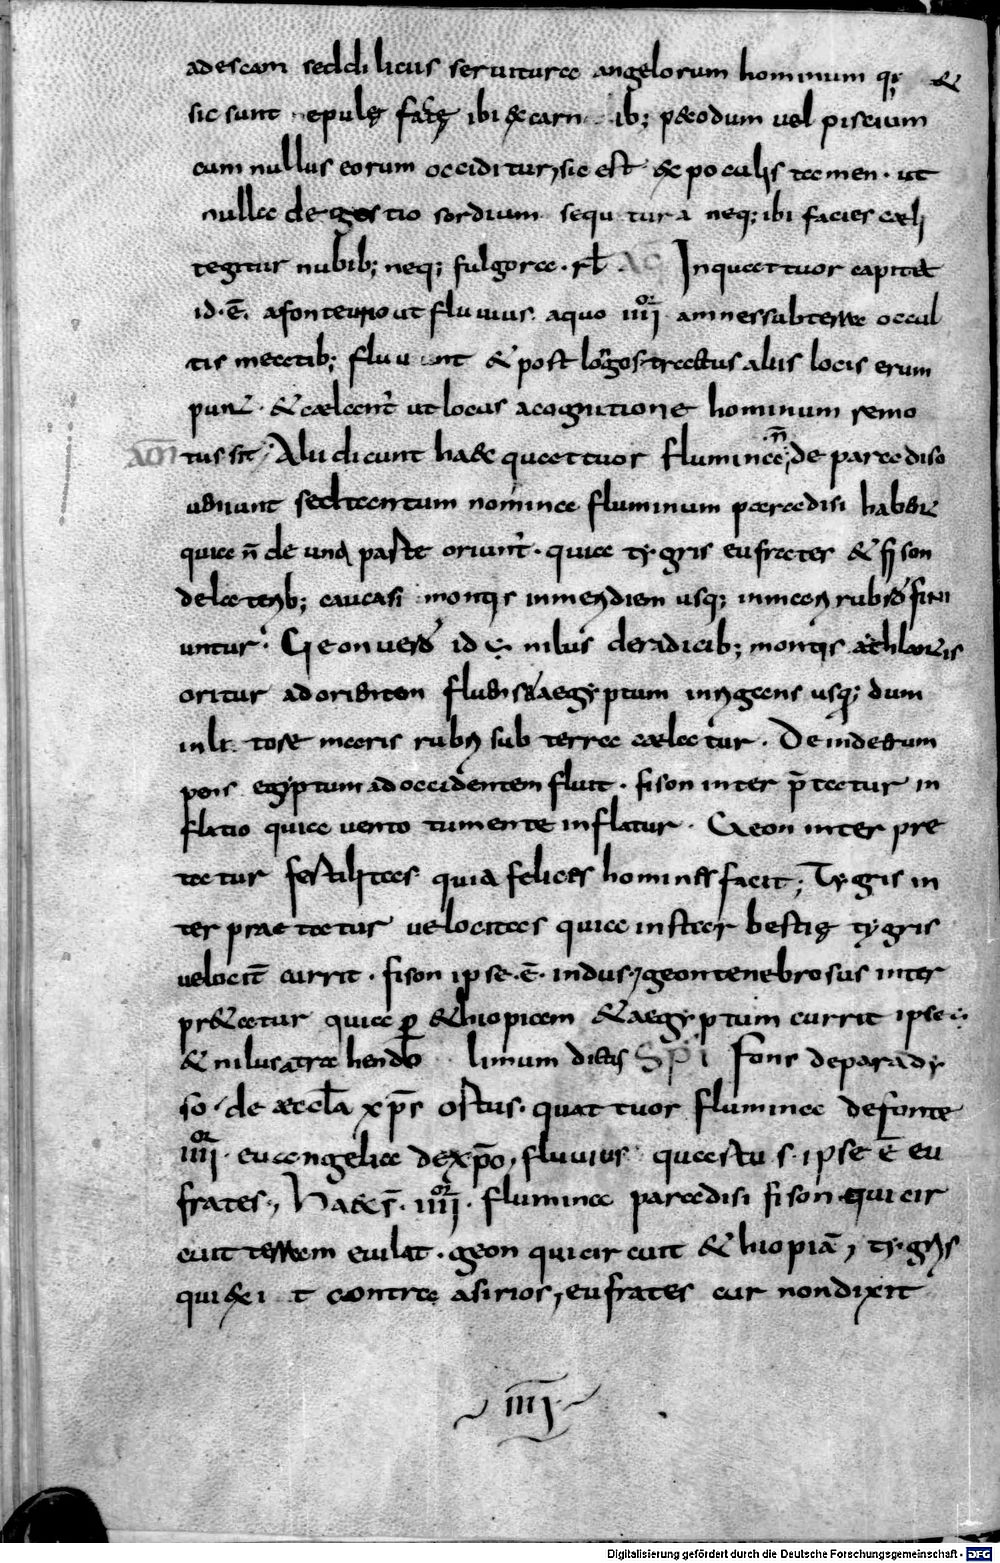 ad escam sed di licus seruitura angelorum hominum qs; &
sic sunt epulę facę ibi & carn ib; pecodum uel piscium
cum nullus eorum occiditur, sic est & poculis tamen · ut
nulla degestio sordium sequtura neq; ibi facies cæli
tegitur nubib; neq; fulgora · rł In quattuor capita
id · ē · a fonte uno ut fluuius · a quo iiiior amnes sub terra occul
tis meatib; fluu nt & post longos tractus aliis locis erum
punt · & cælant ut locus a cognitione hominum remo
tus sit, Alii dicunt haec quattuor flumina n̄ de paradiso
ueniunt sed tantum nomina fluminum paradisi habent
quia n̄ de una parte oriunt · quia tygris eufrates & fison
de laterib; caucasi montis in meridiem usq; in mare rubrum fini
untur · Geon uero id ē · nilus de radicib; montis athlantis
oritur ad orientem fluens & aegyptum inrigans usq; dum
in litore maris rubri sub terra cælatur · De inde rum
pens egyptum ad occidentem fluit · fison inter p̄tatur in
flatio quia uento tumente inflatur · Geon inter pre
tatur fertilitas quia felices homines facit; Tygris in
ter praetatur uelocitas quia instar bestię tygris
uelocit̄ currit · fison ipse · ē · indus, geon tenebrosus inter
pr&atur quia ꝑ &hiopicam & aegyptum currit ipse ē ·
& nilus a trahendo limum dictus Sp̄i Fons de parady
so · de æccła xp̄s ostus · quattuor flumina de fonte
iiiior · euangelia de xp̄o, fluuius quartus · ipse ē eu
frates, Haec s̄ · iiiior · flumina paradisi fison qui cir
cuit terram euilat · geon qui circuit &hiopiā, tygris
qui exi t contra asirios, eufrates cur non dixit
iiii
Digitalisierung gefördert durch die Deutsche Forschungsgemeinschaft - DFG